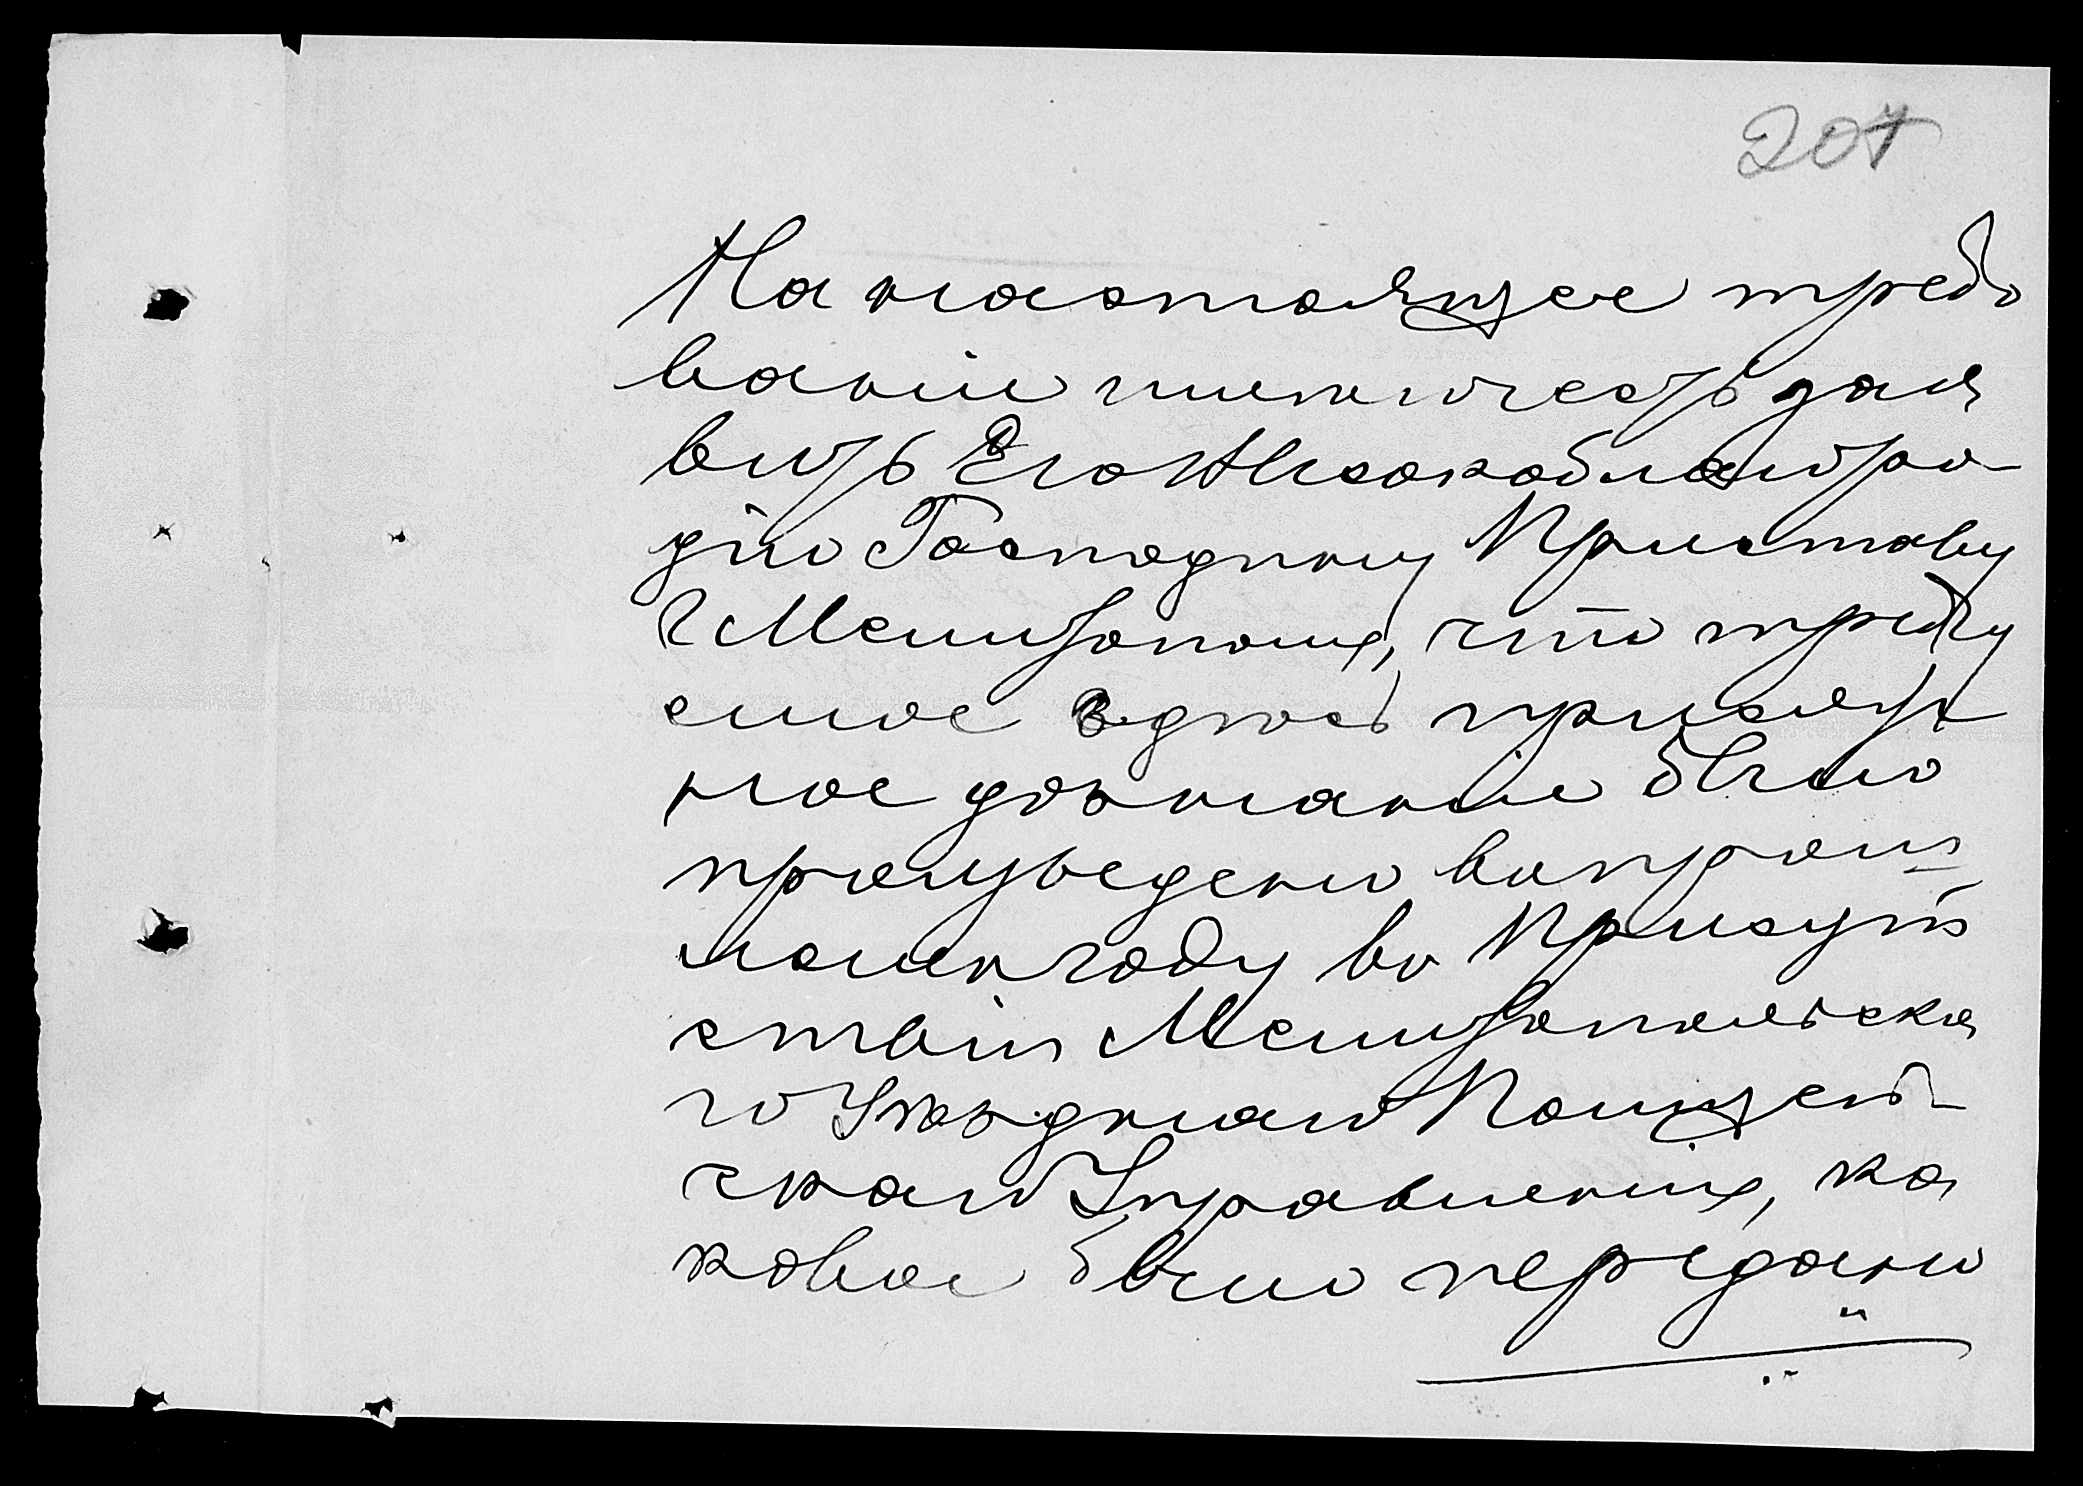 207
На настоящее требо
ваніе имею честь доло
вить Его Высокоблагоро-
дію Господину Приставу
г Мелитополя, что требу
емое здесь присяж
ное дознаніе было
произведено въ прош-
ломъ году въ Присут
ствіи Мелитопольска
го Уѣзднаго Полицей-
скаго Управленія, ка
ковое было передано